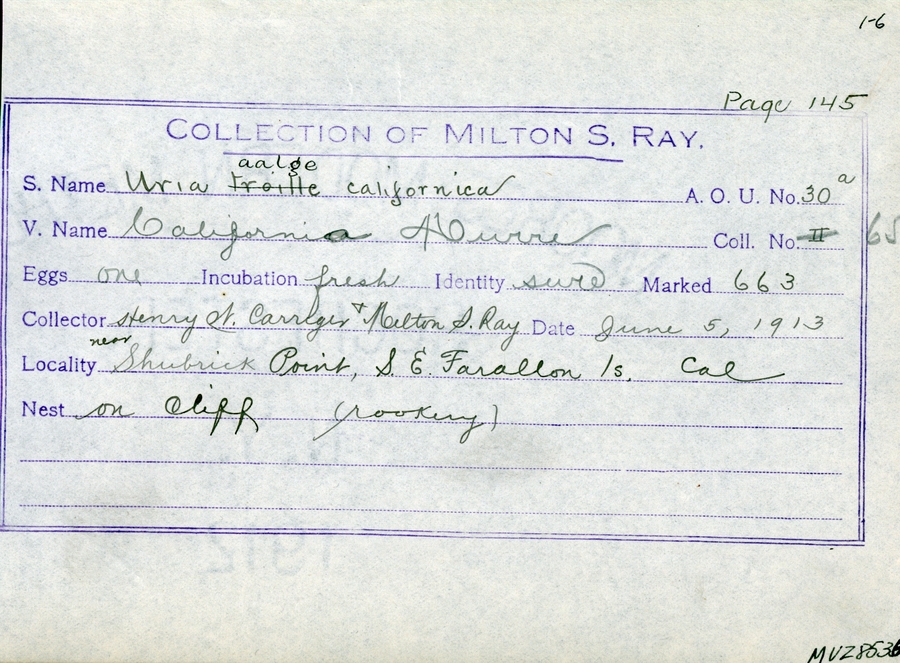 1-6
Page 145
COLLECTION OF MILTON S. RAY.
aalge
S. Name Uria troille californica A. O. U. No. 30 a
V. Name California Murre Coll. No. II 65
Eggs one Incubation fresh Identity sure Marked 663
Collector Henry W. Carriger & Milton S. Ray Date June 5, 1913
near
Locality Shubrick Point, S. E. Farallon Is. Cal
Nest on cliff (rookery)
1912
MVZ8536